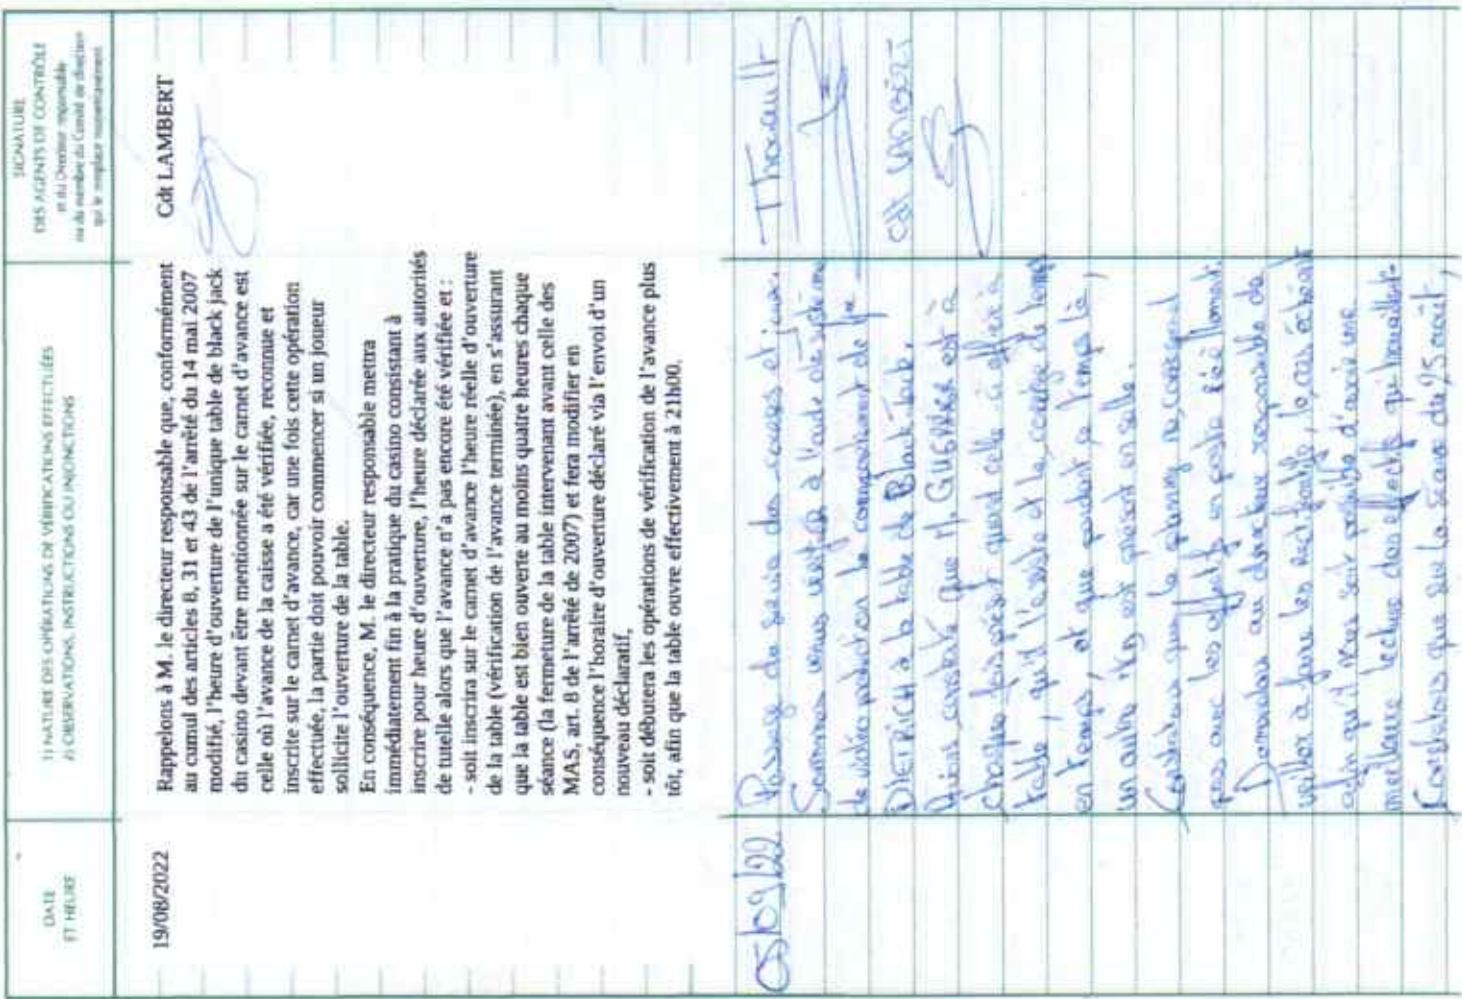 DATE
ET HEURE
1) NATURE DES OPÉRATIONS DE VÉRIFICATIONS EFFECTUÉES
2) OBSERVATIONS, INSTRUCTIONS OU INJONCTIONS
SIGNATURE
DES AGENTS DE CONTRÔLE
et du Directeur responsable
ou du membre du Comité de direction
qui le remplace momentanément
19/08/2022
Rappelons à M. le directeur responsable que, conformément
au cumul des articles 8, 31 et 43 de l'arrêté du 14 mai 2007
modifié, l'heure d'ouverture de l'unique table de black jack
du casino devant être mentionnée sur le carnet d'avance est
celle où l'avance de la caisse a été vérifiée, reconnue et
inscrite sur le carnet d'avance, car une fois cette opération
effectuée, la partie doit pouvoir commencer si un joueur
sollicite l'ouverture de la table.
En conséquence, M. le directeur responsable mettra
immédiatement fin à la pratique du casino consistant à
inscrire pour heure d'ouverture, l'heure déclarée aux autorités
de tutelle alors que l'avance n'a pas encore été vérifiée et :
- soit inscrira sur le carnet d'avance l'heure réelle d'ouverture
de la table (vérification de l'avance terminée), en s'assurant
que la table est bien ouverte au moins quatre heures chaque
séance (la fermeture de la table intervenant avant celle des
MAS, art. 8 de l'arrêté de 2007) et fera modifier en
conséquence l'horaire d'ouverture déclaré via l'envoi d'un
nouveau déclaratif,
- soit débutera les opérations de vérification de l'avance plus
tôt, afin que la table ouvre effectivement à 21h00.
Cdt LAMBERT
05/09/22
Passage du Service des courses et jeux.
Sommes venus vérifier à l'aide du système
de vidéo protection le comportement de Mme
DIETRICH à la table de Black Jack.
Avons constaté que M. est à
chaque fois présent quand celle ci officie à
table, qu'il l'assiste et la corrige de temps
en temps, et que pendant ce temps là,
un autre est présent en salle.
Constatons que le planning ne correspond
pas avec les effectifs en poste réellement.
Demandons au directeur responsable de
veiller à faire les rectificatifs, le cas échéant
afin qu'il nous soit possible d'avoir une
meilleure lecture des effectifs qui travaillent.
Constatons que sur la séance du 25 août,
Thorault
Cdt LAMBERT